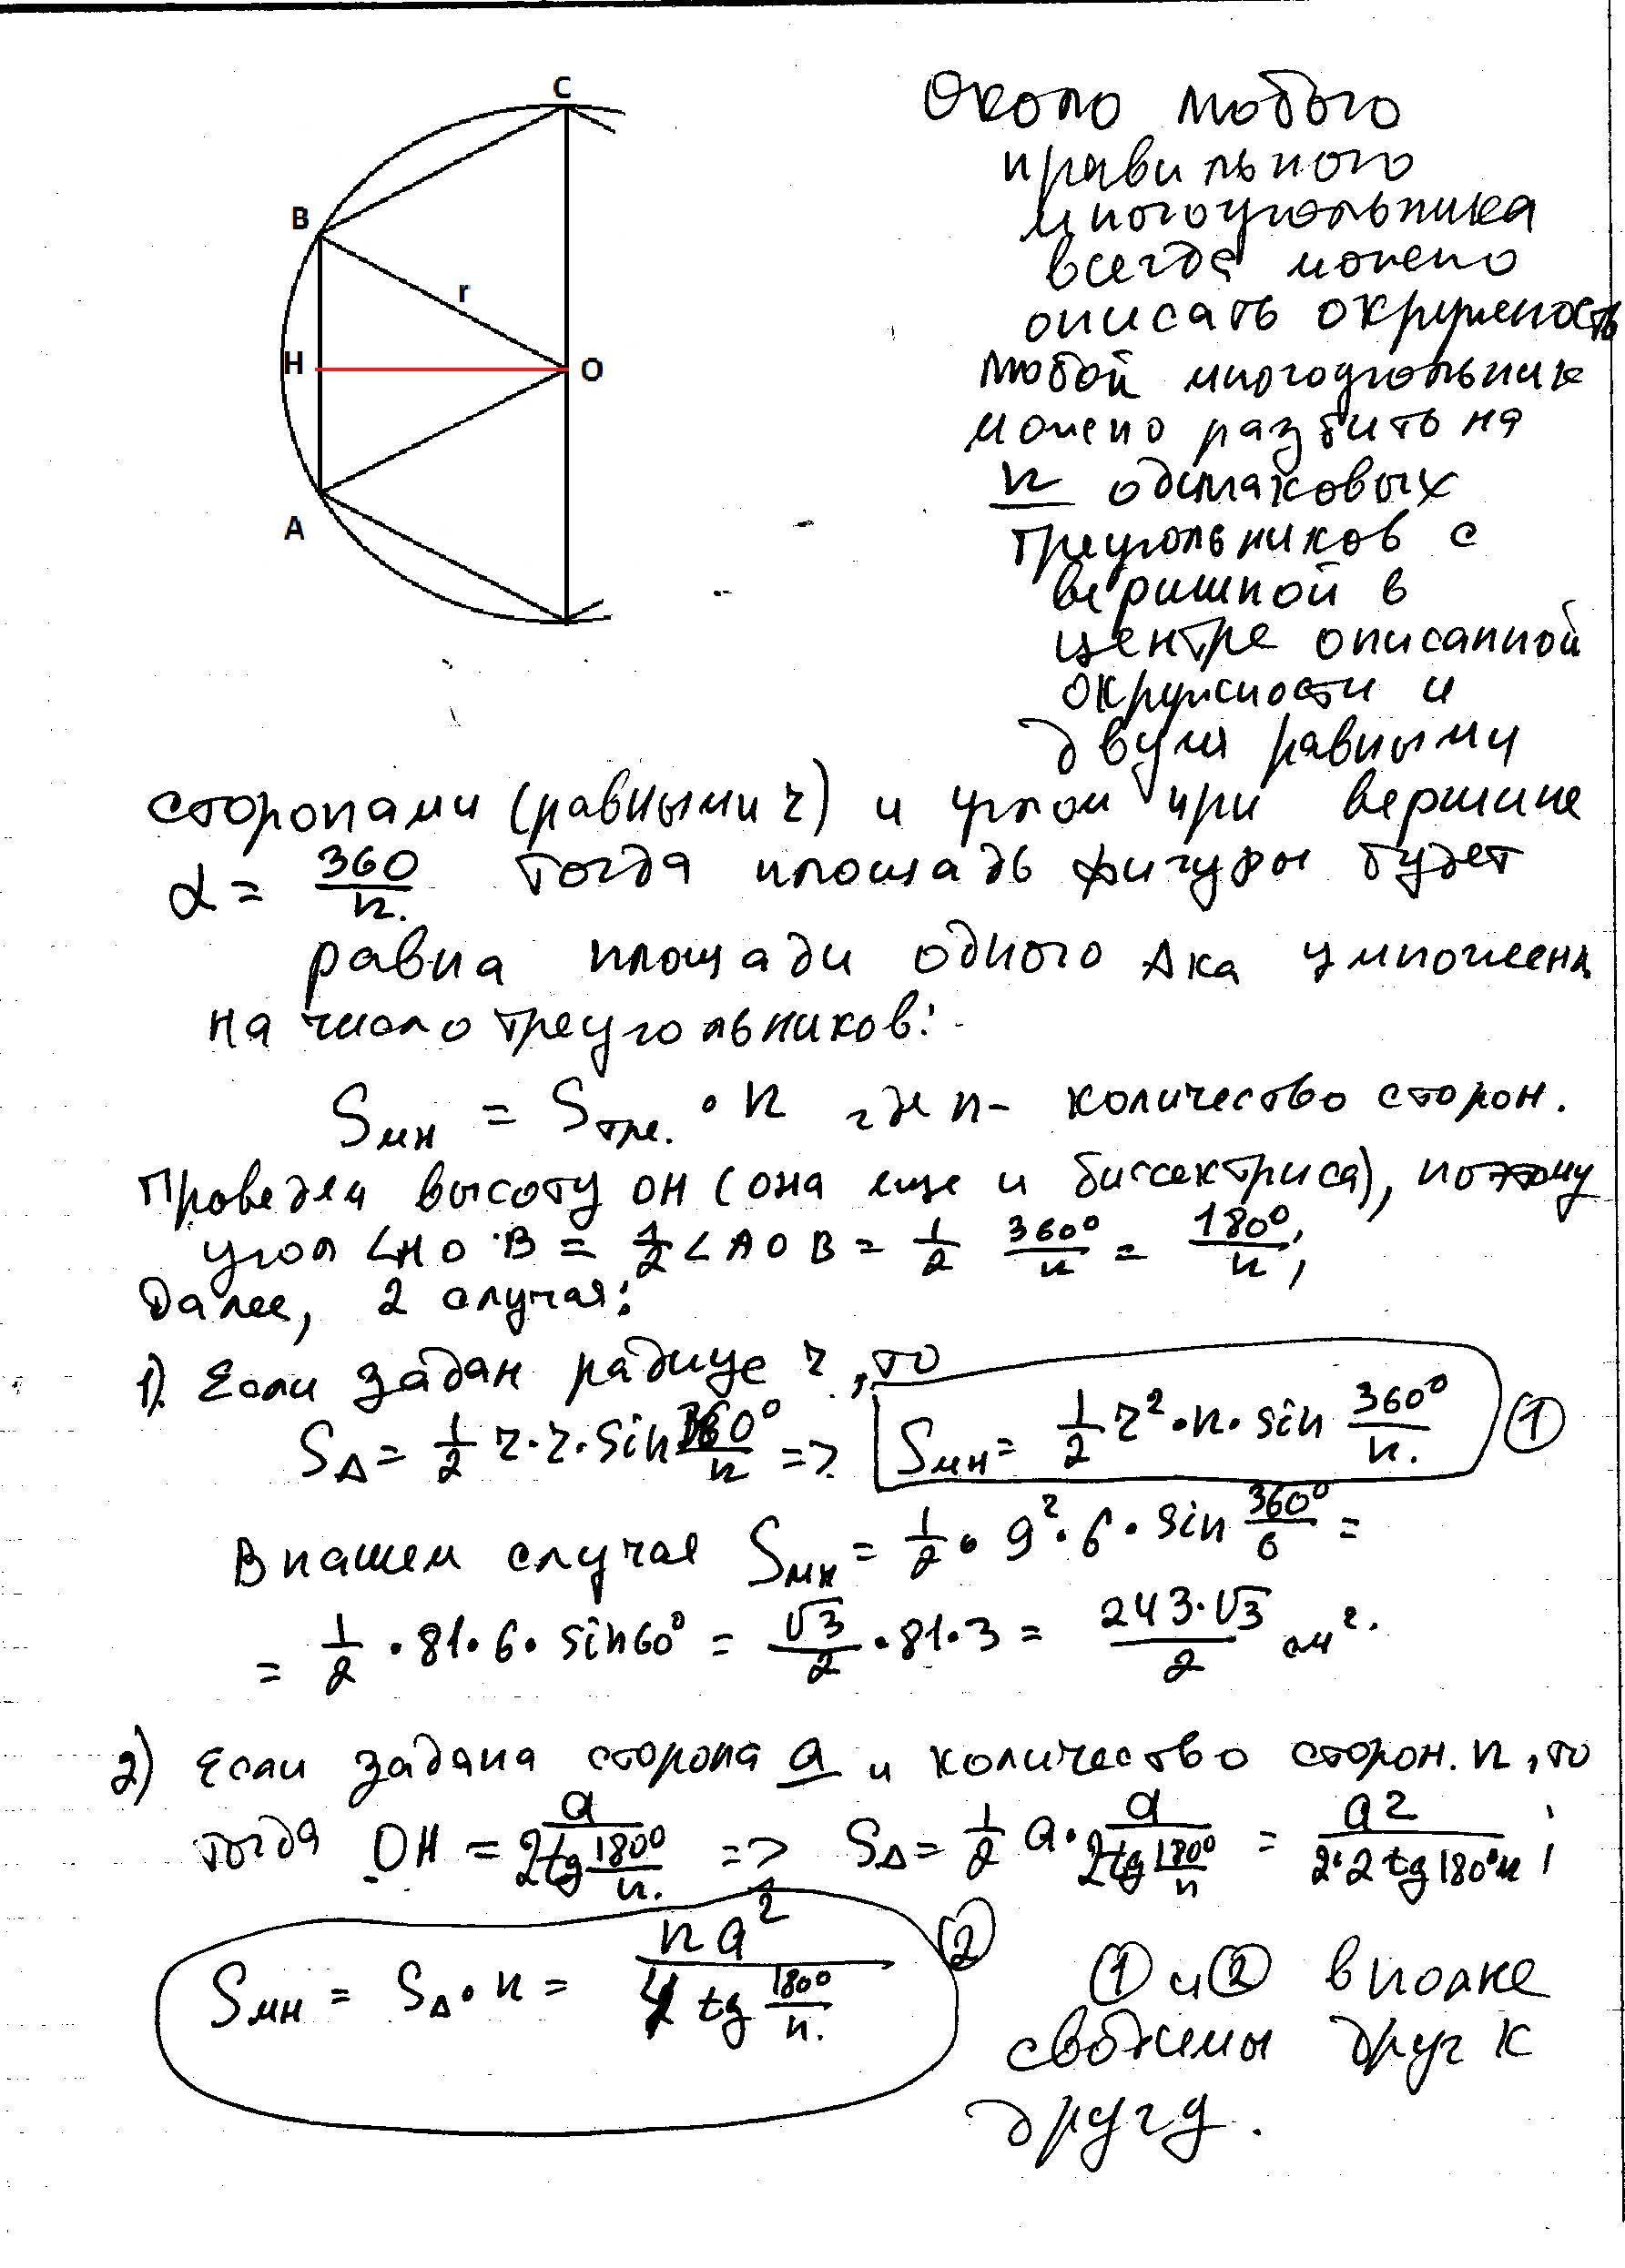 C
B
r
H
O
A
Около любого
правильного
многоугольника
всегда можно
описать окружность
любой многоугольник
можно разбить на
n одинаковых
треугольников с
вершиной в
центре описанной
окружности и
двумя равными
сторонами (равными r) и углом при вершине
α = 360/n. Тогда площадь фигуры будет
равна площади одного Δка умножена
на число треугольников:
Sмн = Sтре. • n где n - количество сторон.
Проведем высоту OH (она еще и биссектриса), поэтому
угол ∠HOB = 1/2 ∠AOB = 1/2 360°/n = 180°/n;
Далее, 2 случая:
1). Если задан радиус r, то
SΔ = 1/2 r·r·sin 360°/n => Sмн = 1/2 r²·n·sin 360°/n. ①
В нашем случае Sмн = 1/2 · 9²·6·sin 360°/6 =
= 1/2 ·81·6·sin60° = √3/2 ·81·3 = 243·√3/2 см².
2) Если задана сторона a и количество сторон. n, то
тогда OH = a/2tg 180°/n. => SΔ = 1/2 a· a/2tg 180°/n = a2/2·2tg180°n ;
Sмн = SΔ·n = na²/4 tg 180°/n. ②
① и ② вполне
сводимы друг к
другу.